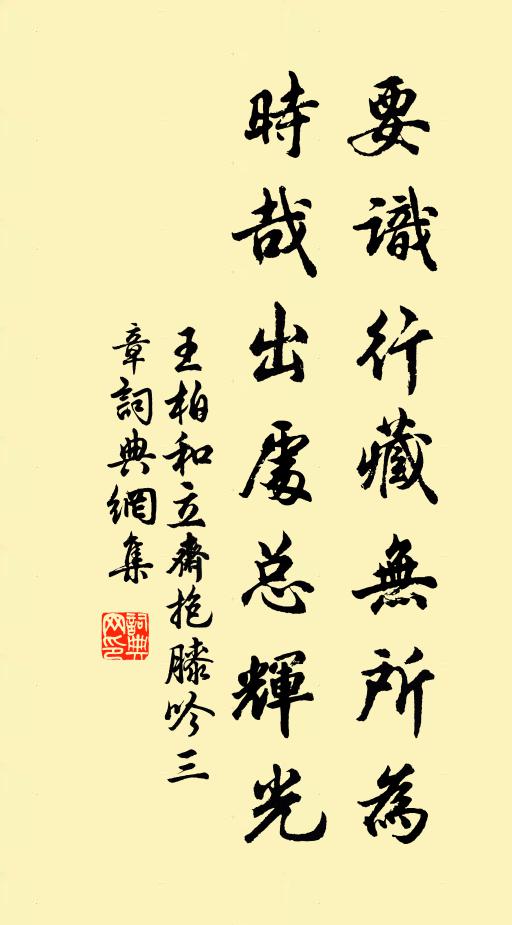 要識行藏無所為
時哉出處总輝光
王柏和立齋抱膝吟三
章詞典網集
詞典
网印